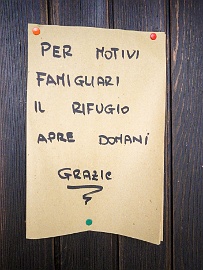 PER MOTIVI
FAMIGLIARI
IL RIFUGIO
APRE DOMANI
GRAZIE